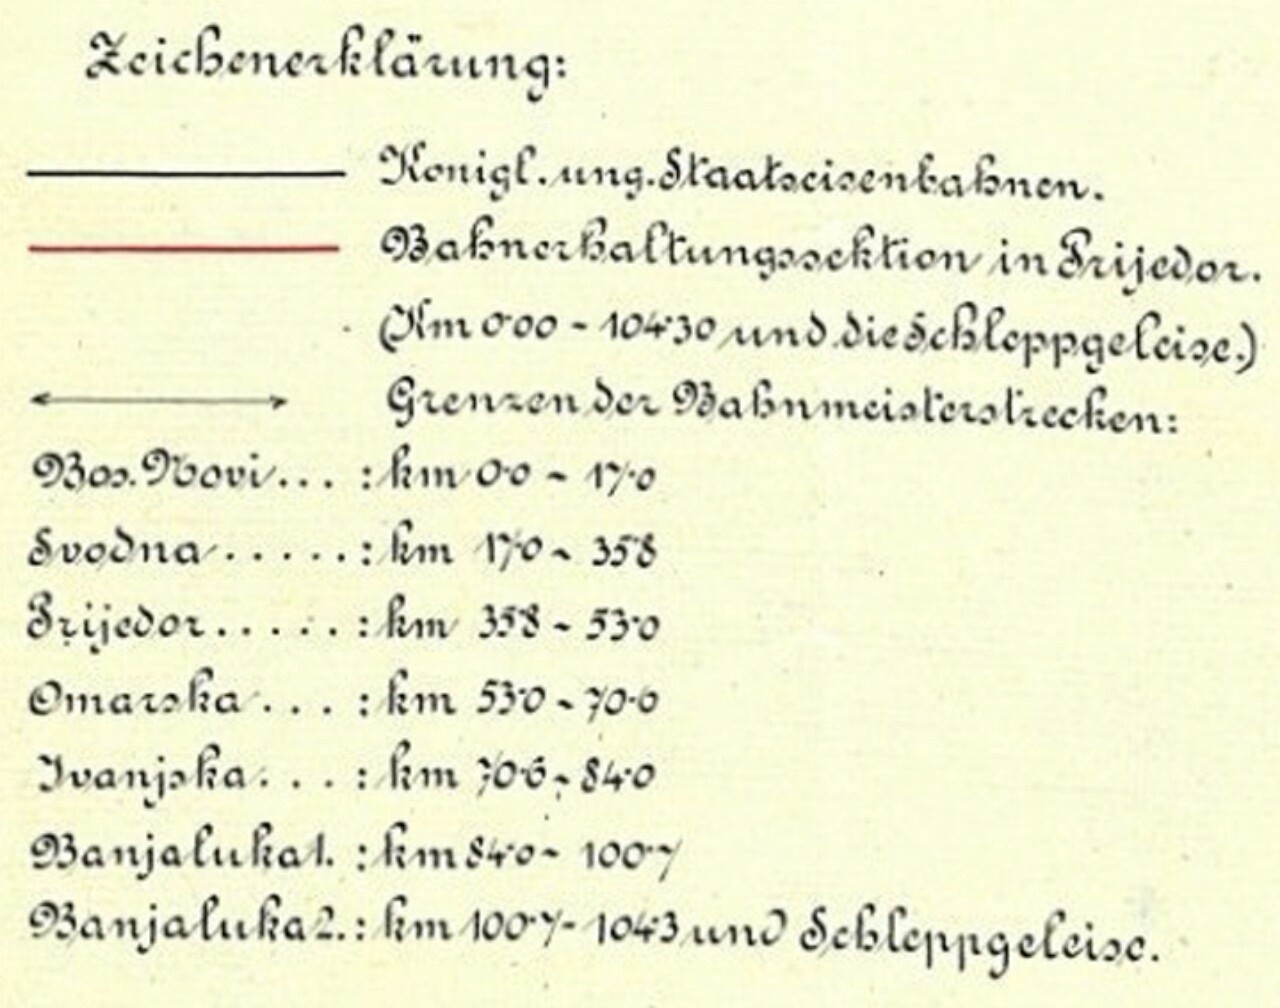 Zeichenerklärung:
Königl. ung. Staatseisenbahnen.
Bahnerhaltungssektion in Prijedor.
(Km 0·00 - 104·30 und die Schleppgeleise.)
Grenzen der Bahnmeisterstrecken:
Bos. Novi... : km 0·0 - 17·0
Svodna.....: km 17·0 - 35·8
Prijedor.....: km 35·8 - 53·0
Omarska... : km 53·0 - 70·6
Ivanjska... : km 70·6 - 84·0
Banjaluka 1. : km 84·0 - 100·7
Banjaluka 2. : km 100·7 - 104·3 und Schleppgeleise.